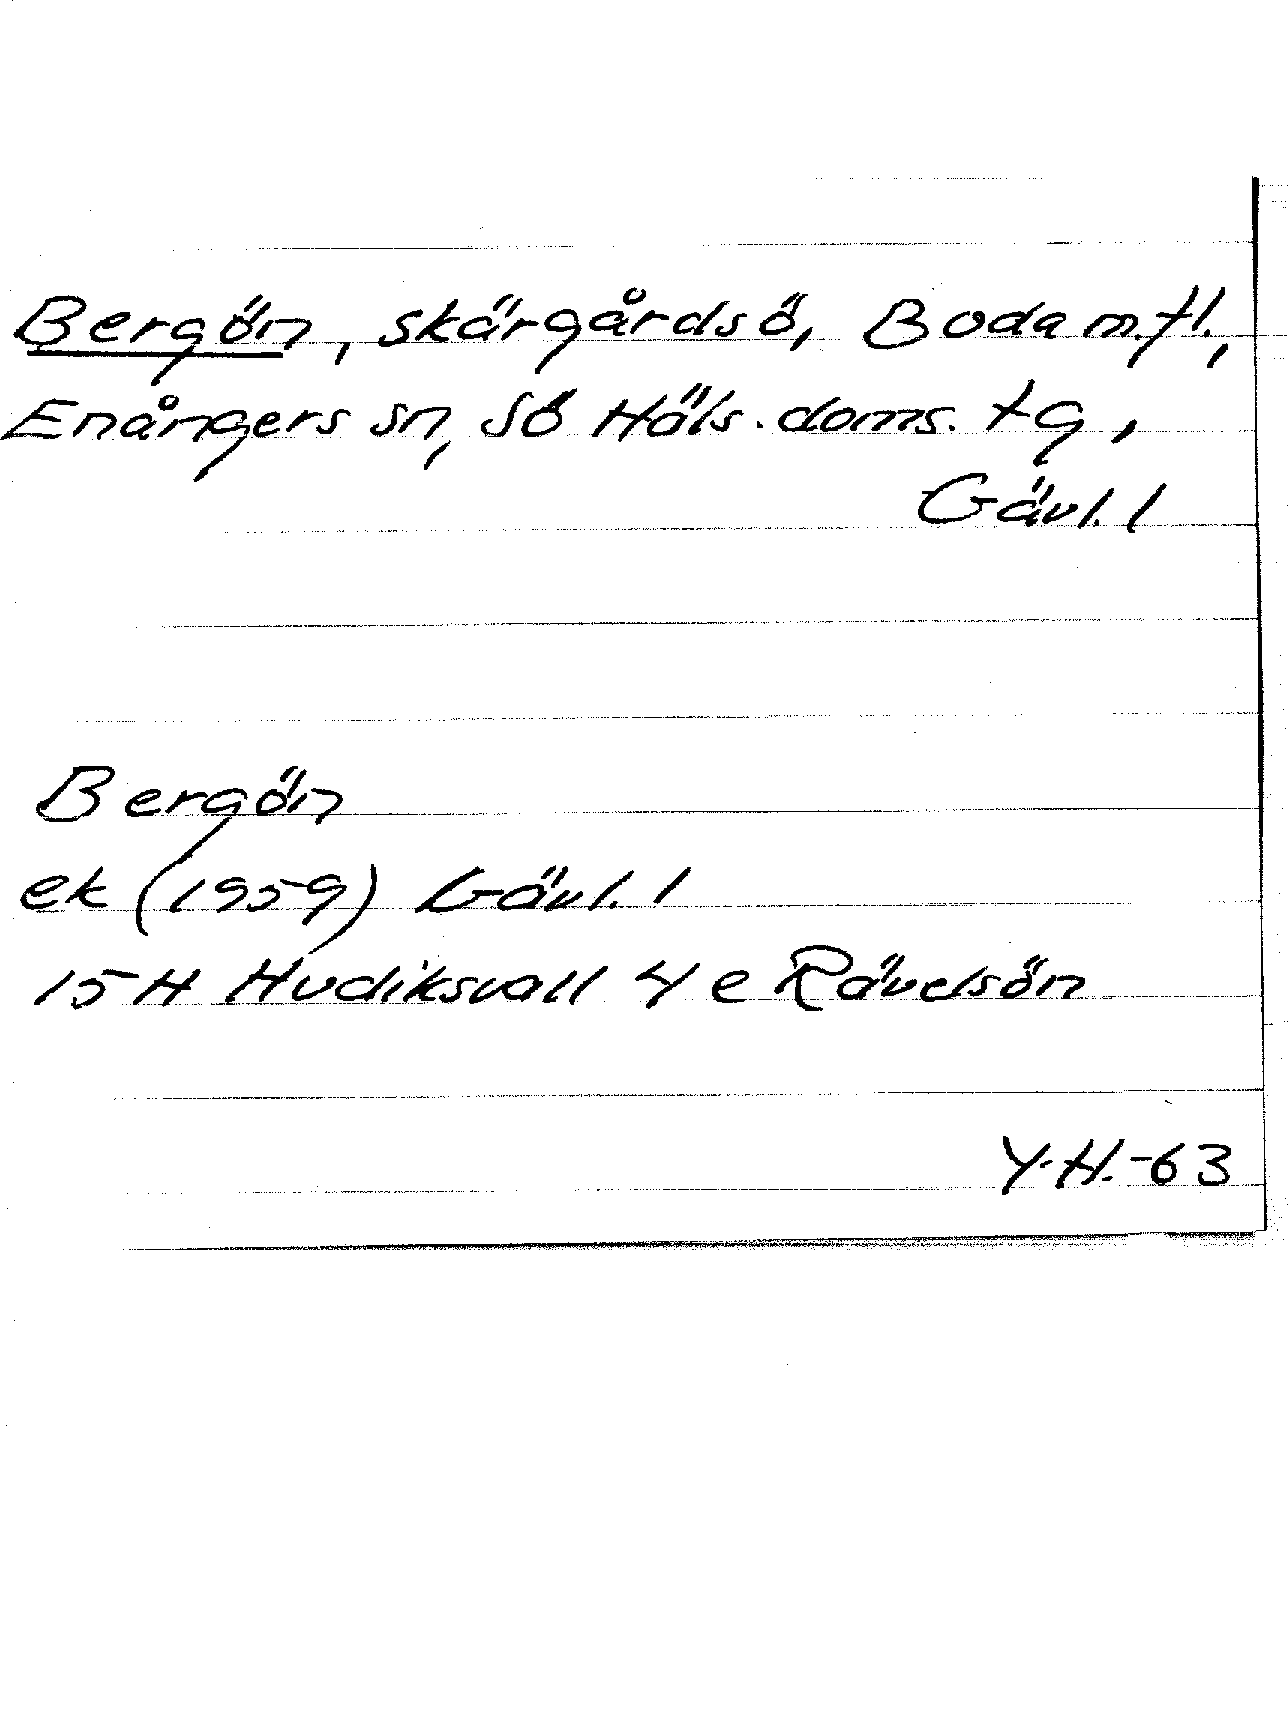 Bergön, skärgårdsö, Boda m.fl.,
Enångers sn, SÖ Häls. doms. tg,
Gävl. l
Bergön
ek (1959) Gävl. l
15 H Hudiksvall 4 e Rävelsön
Y.H.-63